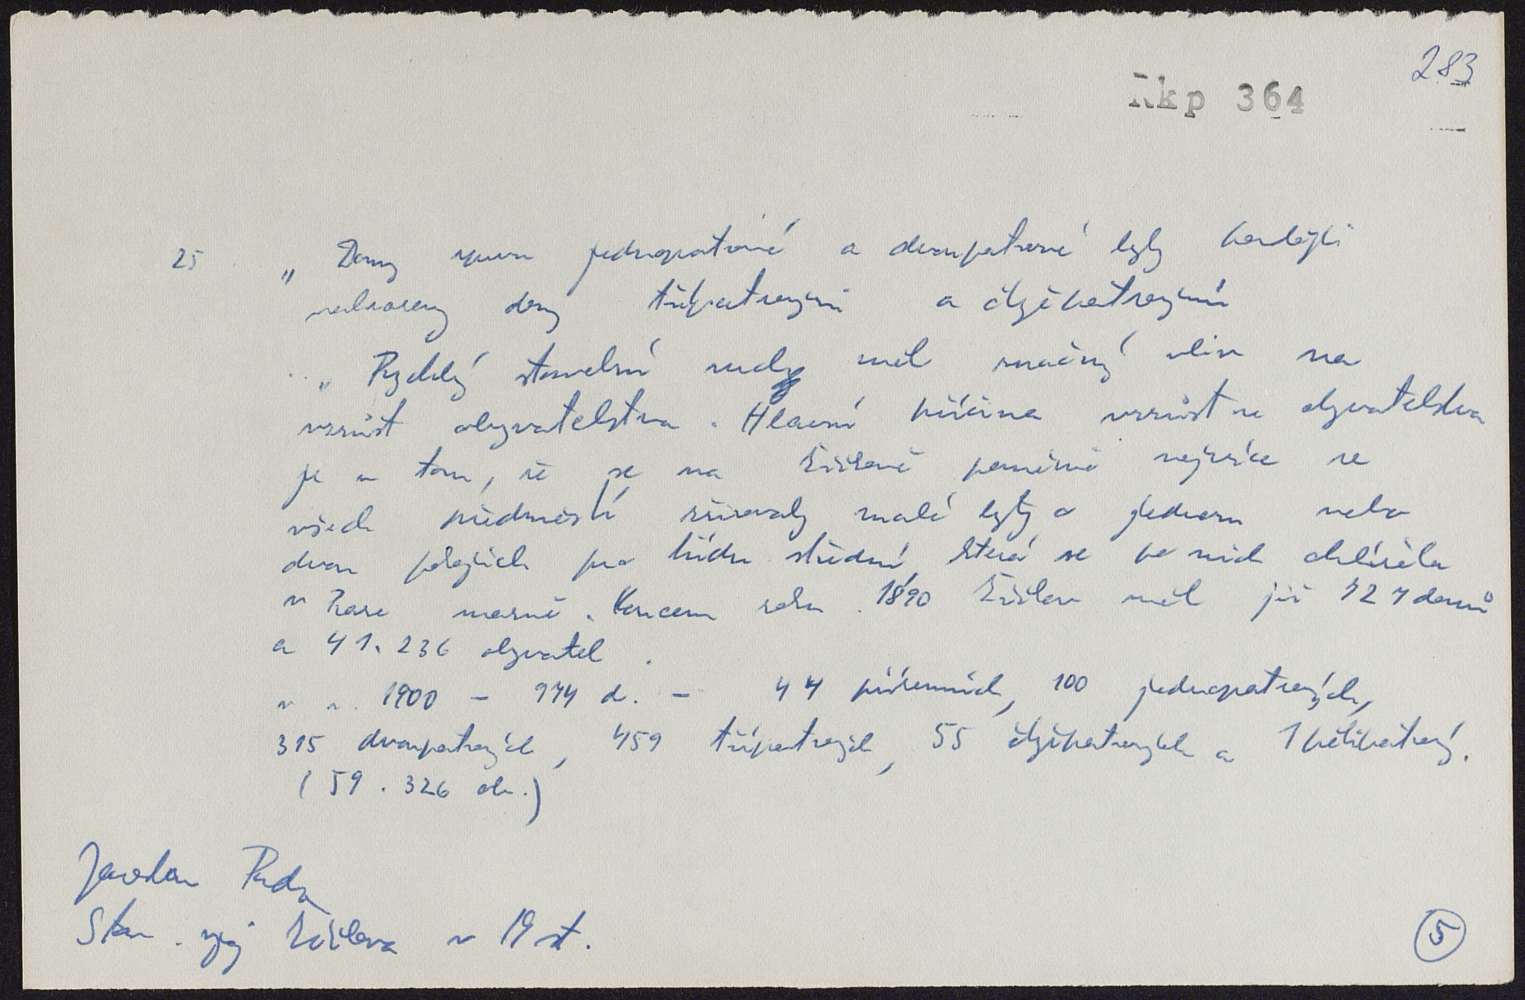 283
Rkp 364
25 „ Domy jednopatrové a dvoupatrové byly
nahrazeny domy třípatrovými a čtyřpatrovými
„ Rychlý stavební ruch měl značný vliv na
vzrůst obyvatelstva. Hlavní příčina vzrůstu obyvatelstva
je v tom, že se na Žižkově poměrně nejvíce ze
všech předměstí zřizovaly malé byty o jednom nebo
dvou pokojích pro třídu střední, která se po nich ohlížela
v Praze marně. Koncem roku 1890 Žižkov měl již 727 domů
a 41.236 obyvatel.
v r. 1900 – 974 d. – 44 přízemních, 100 jednopatrových,
315 dvoupatrových, 459 třípatrových, 55 čtyřpatrových a 1 pětipatrový.
(59.326 ob.)
Jaroslav
Stav. vývoj Žižkova v 19 st.
5